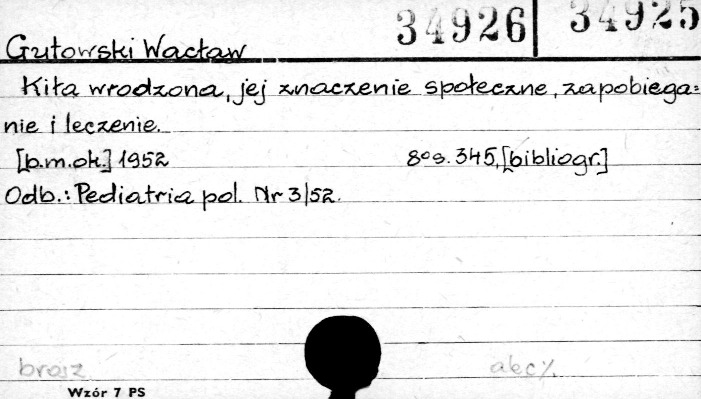 34926 34925
Gutowski Wacław
Kiła wrodzona, jej znaczenie społeczne, zapobiega=
nie i leczenie.
[b.m.ok.] 1952 8° s. 345, [bibliogr.]
Odb.: Pediatria pol. Nr 3/52.
brosz
Wzór 7 PS